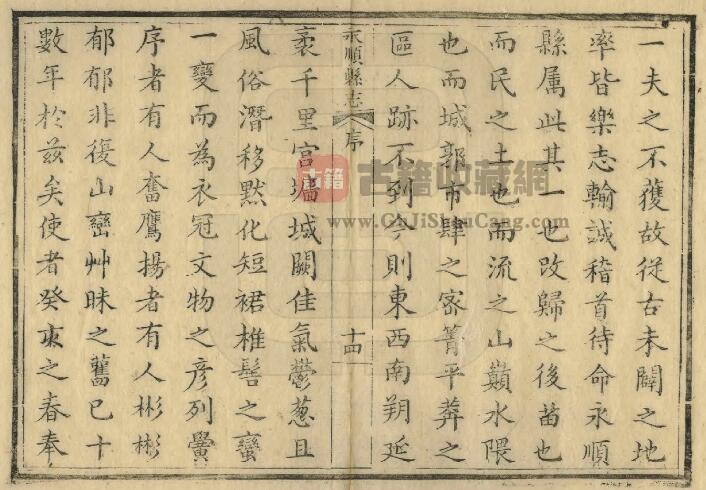 一夫之不獲故從古未闢之地
率皆樂志輸誠稽首待命永順
縣属此其一也改歸之後苗也
而民之土也而流之山巔水隈
也而城郭市肆之密箐平莽之
區人跡不到今則東西南朔延
永順縣志
序
十四
袤千里宮墉城闕佳氣鬱葱且
風俗潛移默化短裙椎髻之蠻
一變而為衣冠文物之彥列黌
序者有人奮鷹揚者有人彬彬
郁郁非復山巒艸昧之舊已十
數年於兹矣使者癸亥之春奉
古籍
古籍收藏網
www.GuJiShouCang.com